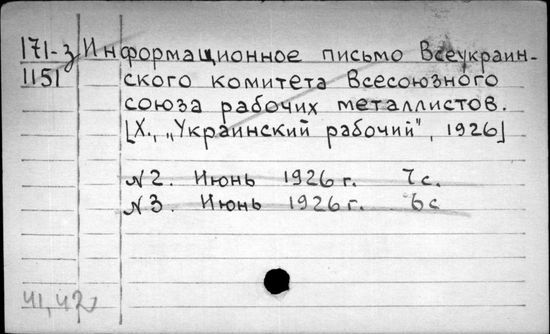 171-з Информационное письмо Всеукраин-
1151 ского комитета Всесоюзного
союза рабочих металлистов.
[Х., „Украинский рабочий", 1926]
№2. Июнь 1926 г. 7 с.
№3. Июнь 1926 г. 6 с
41, 42